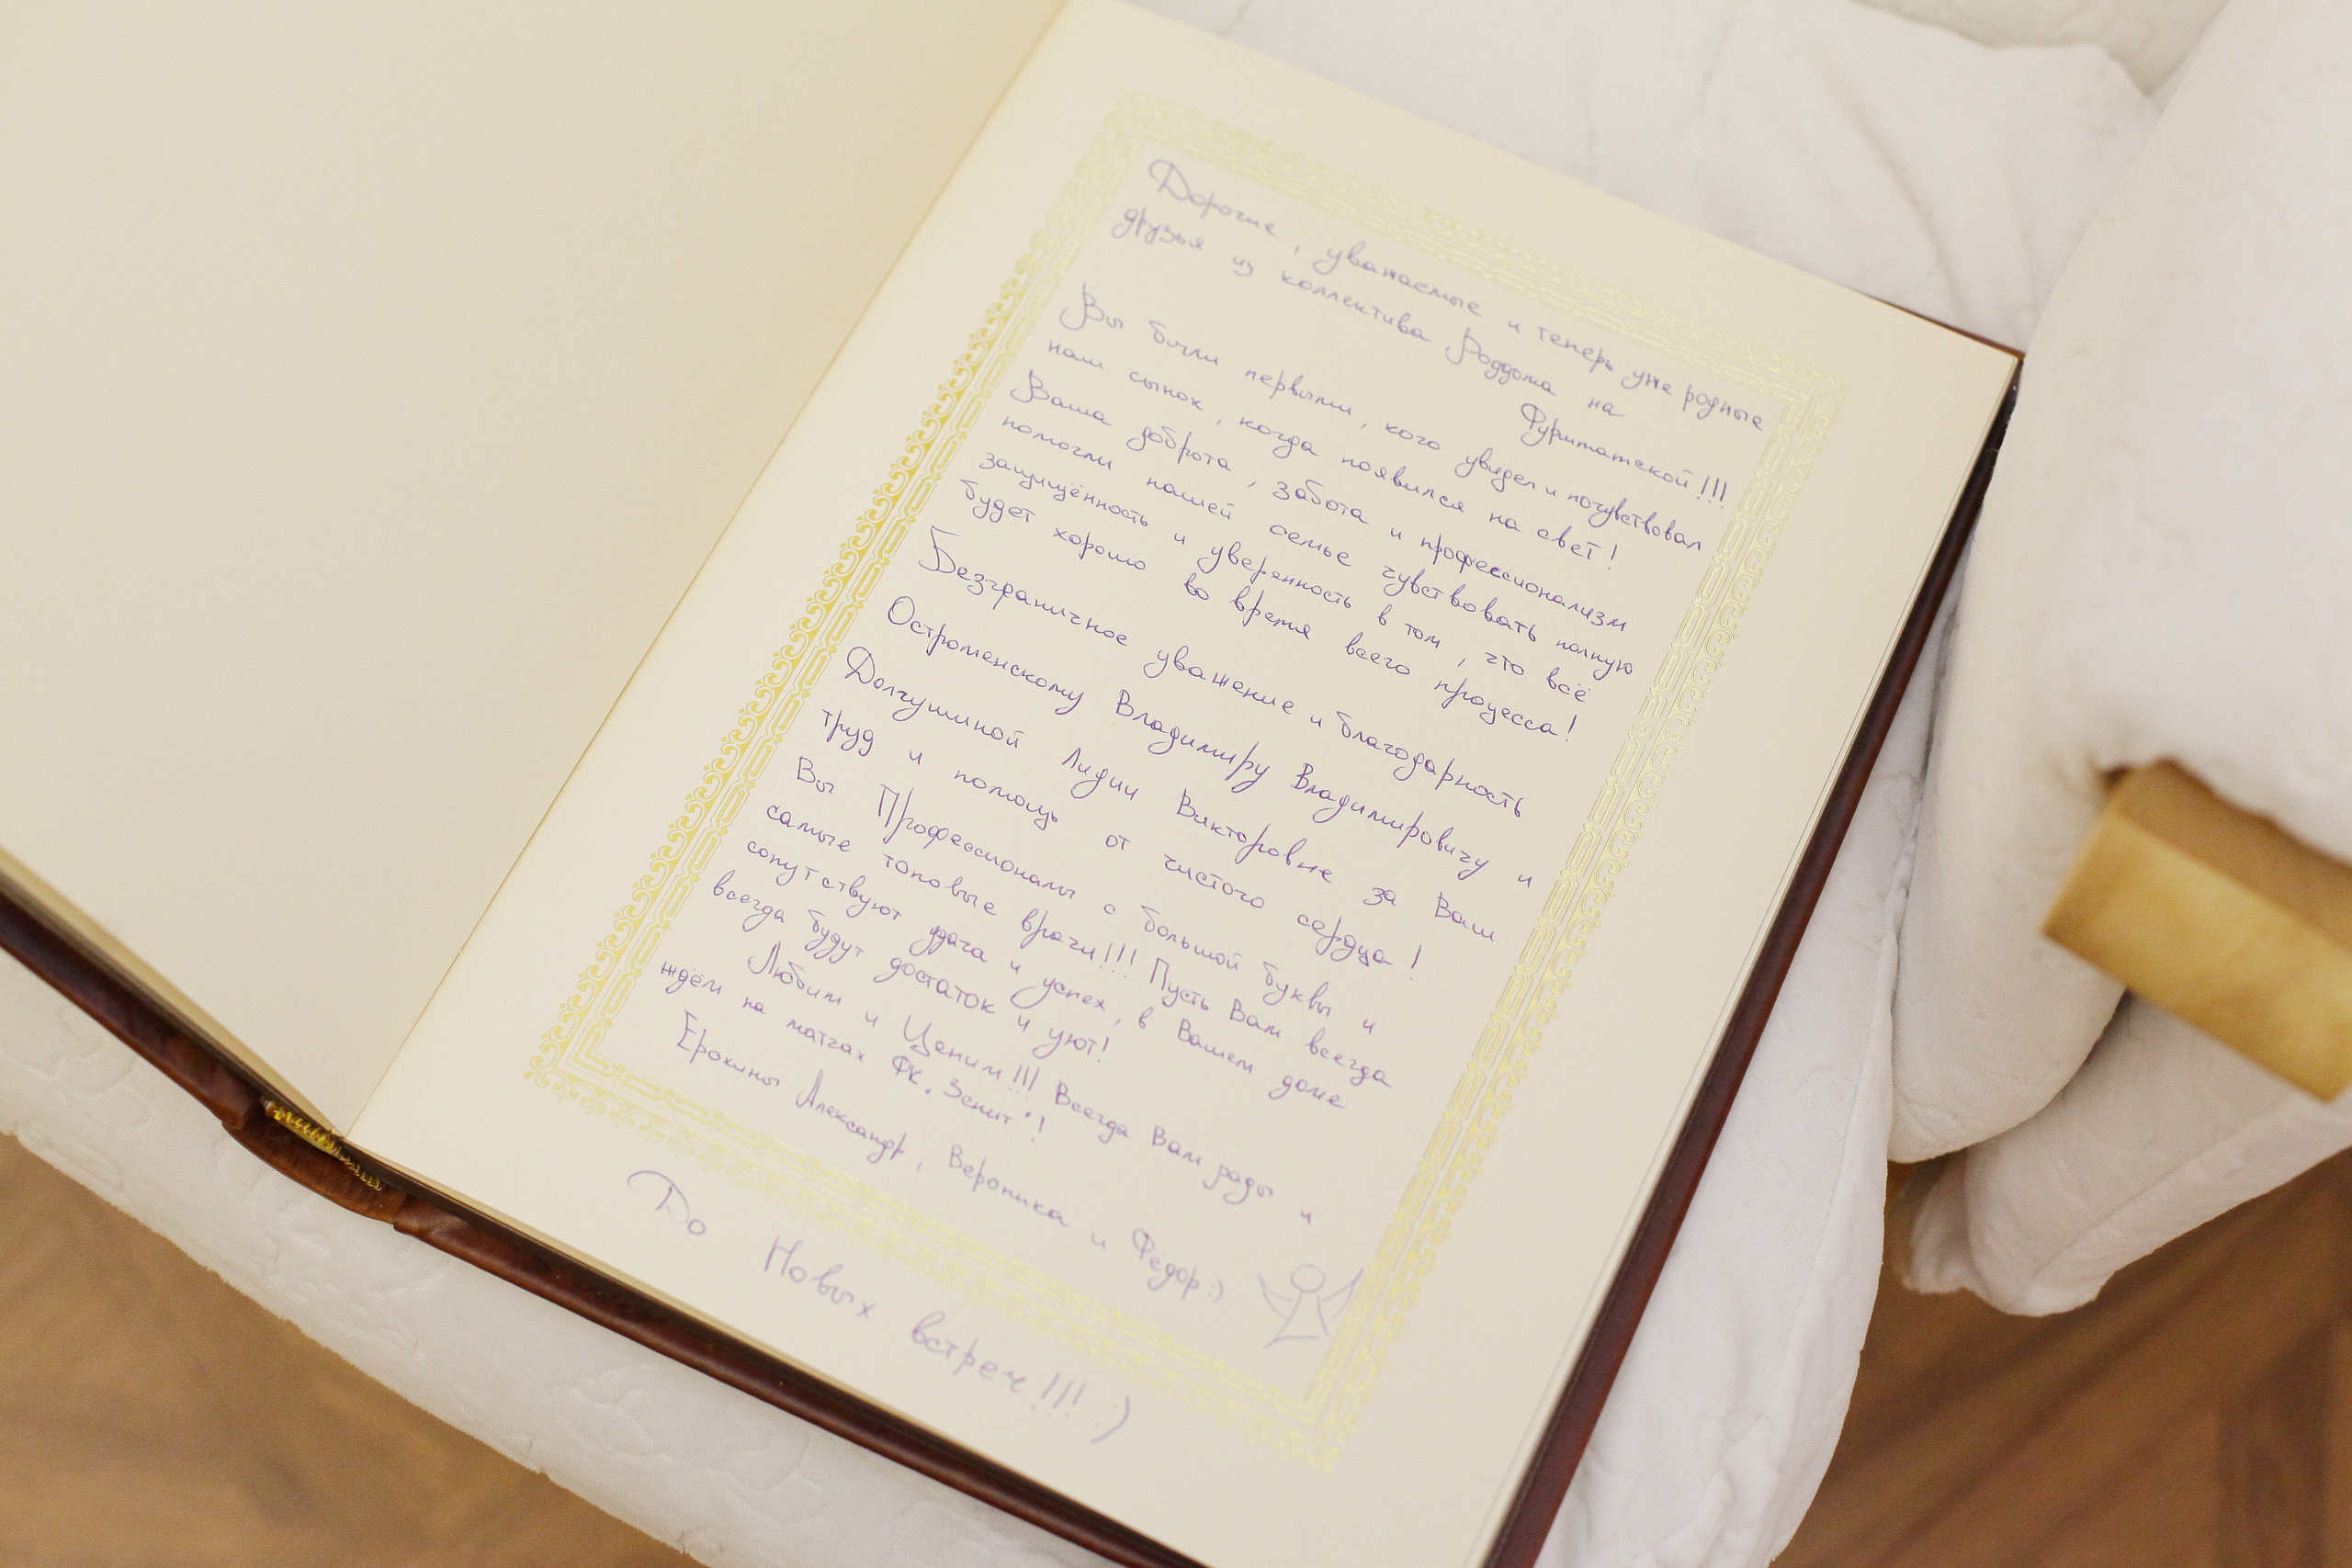 Дорогие, уважаемые и теперь уже родные
друзья из коллектива Роддома на
Фурштатской!!!
Вы были первыми, кого увидел и почувствовал
наш сынок, когда появился на свет!
Ваша доброта, забота и профессионализм
помогли нашей семье чувствовать полную
защищённость и уверенность в том, что всё
будет хорошо во время всего процесса!
Безграничное уважение и благодарность
Остроменскому Владимиру Владимировичу и
Долгушиной Лидии Викторовне за Ваш
труд и помощь от чистого сердца!
Вы Профессионалы с большой буквы и
самые топовые врачи!!! Пусть Вам всегда
сопутствуют удача и успех, в Вашем доме
всегда будут достаток и уют!
Любим и Ценим!!! Всегда Вам рады и
ждём на матчах ФК "Зенит"!
Ерохины Александр, Вероника и Фёдор:)
До Новых встреч!!! :)